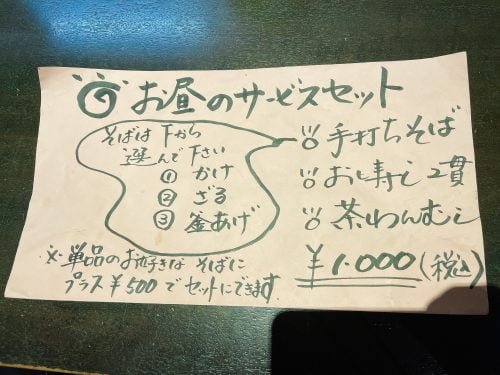 お昼のサービスセット
そばは下から
選んで下さい
① かけ
② ざる
③ 釜あげ
手打ちそば
お寿し2貫
茶わんむし
¥1.000(税込)
※単品のお好きなそばに
プラス¥500でセットにできます